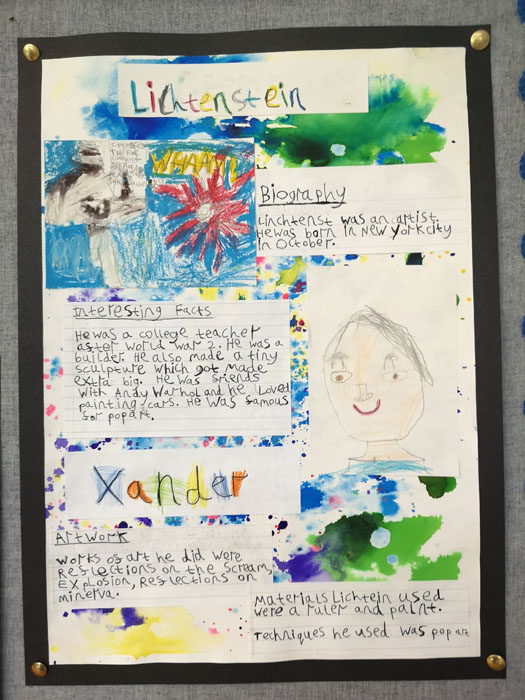 Lichtenstein
WHAAM!
Biography
Linchtenst was an artist.
He was born in New York city
in October.
Interesting Facts
He was a college teacher
after world war 2. He was a
builder. He also made a tiny
sculpture which got made
extra big. He was friends
with Andy Warhol and he loved
painting cars. He was famous
for pop art.
Xander
Artwork
Works of art he did were
Reflections on the Scream,
Explosion, Reflections on
minerva.
Materials Lichtein used
were a ruler and paint.
Techniques he used was pop art